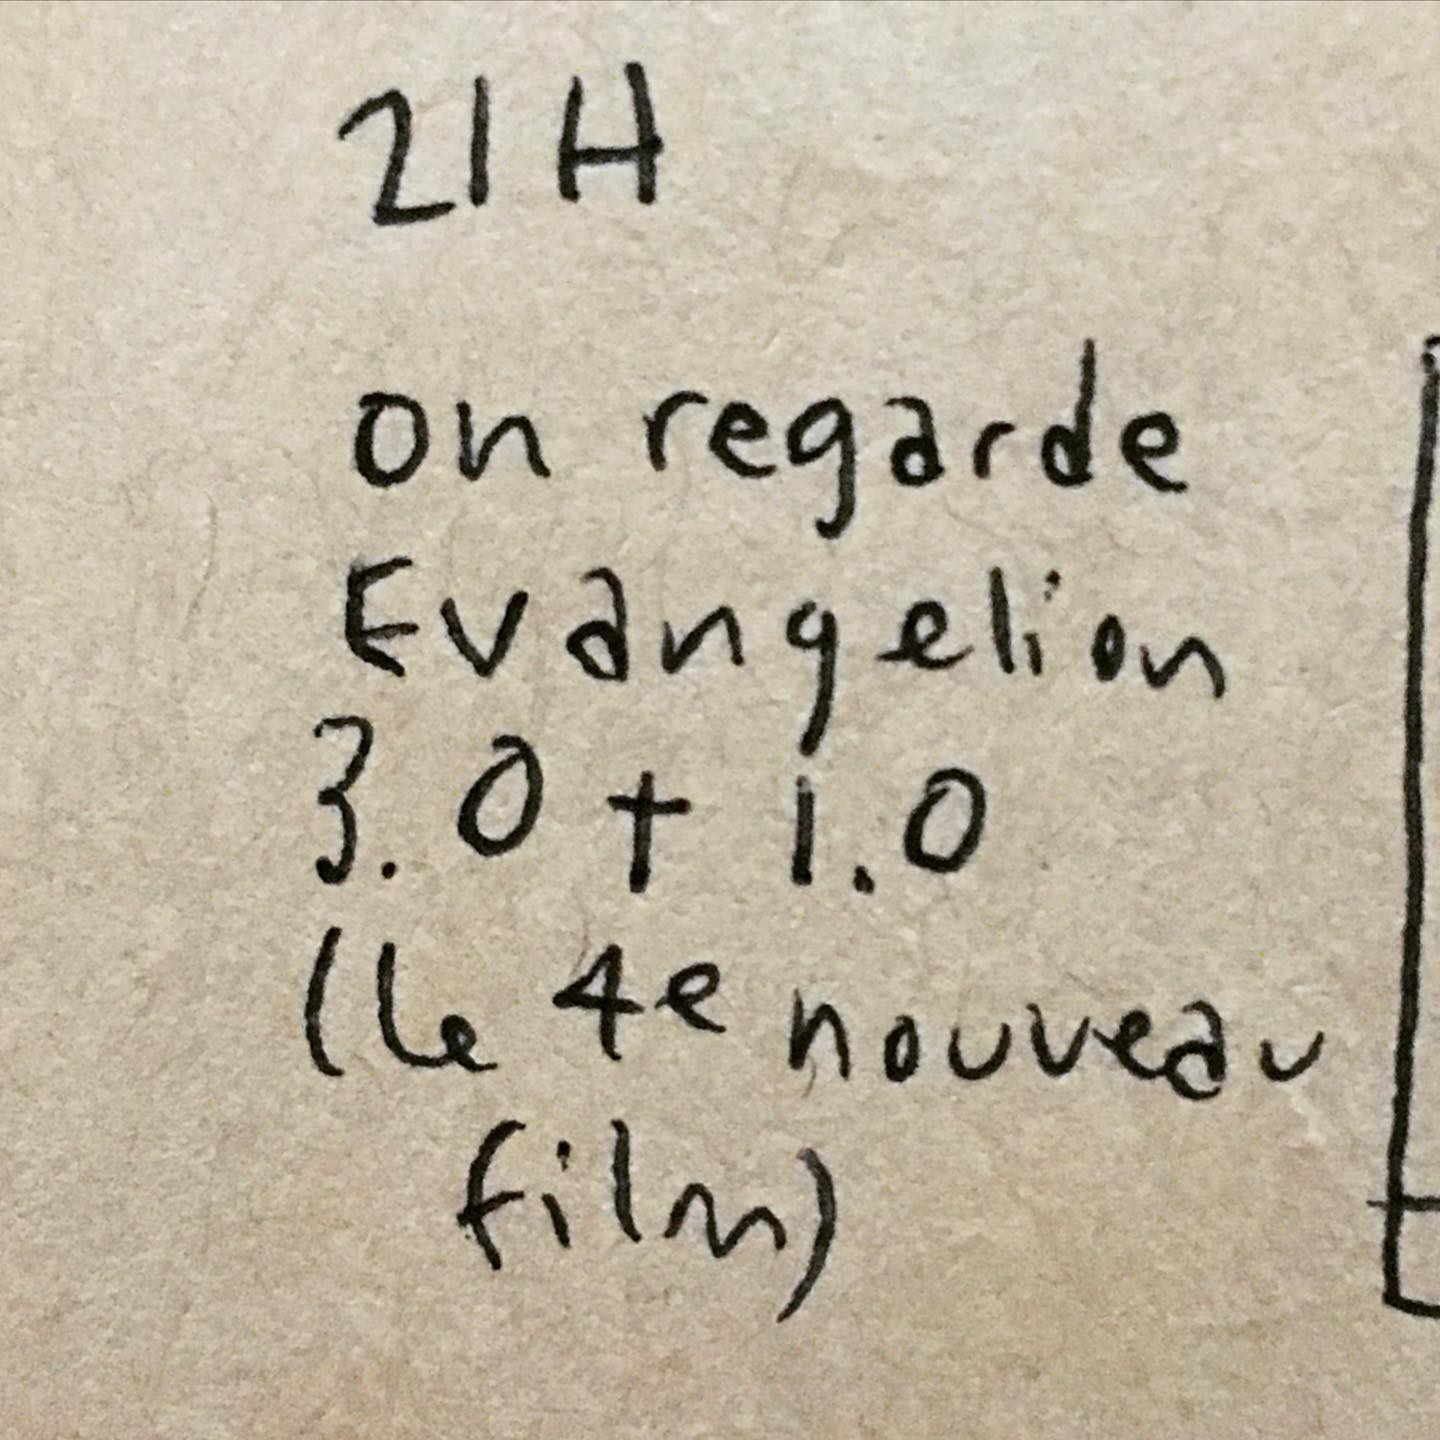 21 H
on regarde
Evangelion
3.0 + 1.0
(le 4e nouveau
film)